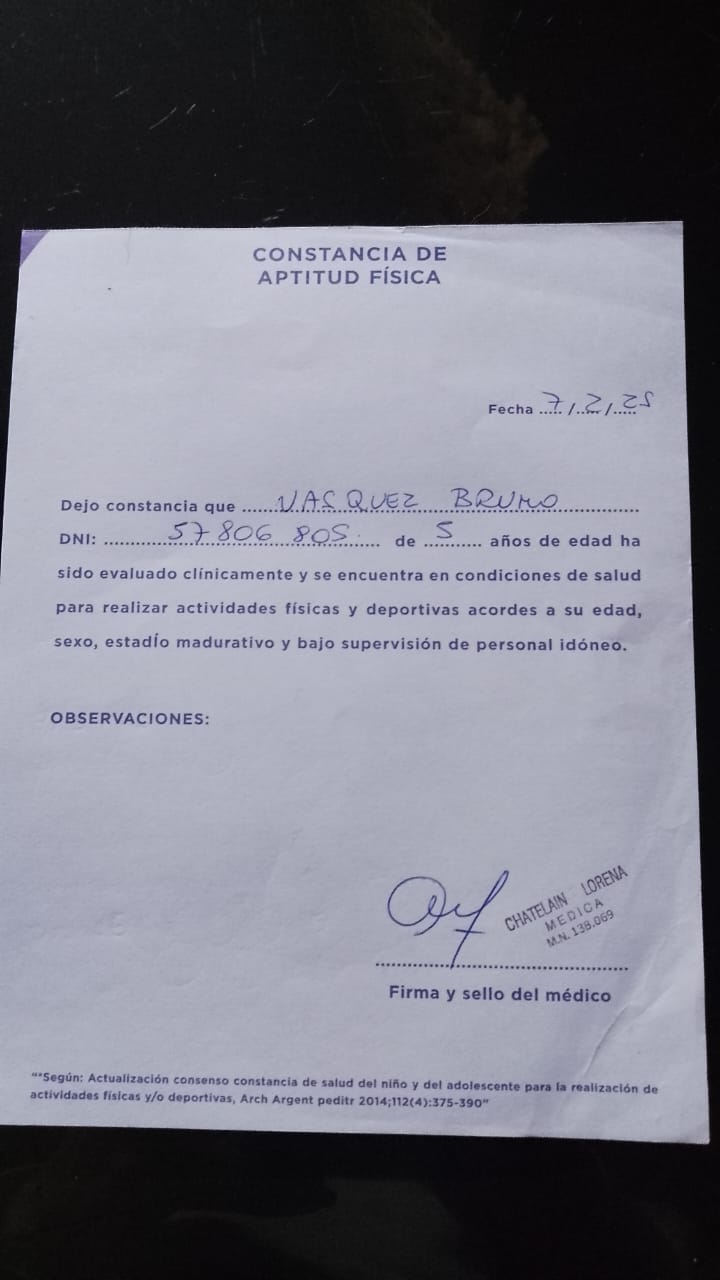 CONSTANCIA DE
APTITUD FÍSICA
Fecha 7/2/25
Dejo constancia que VASQUEZ BRUNO
DNI: 57 806 805 de 5 años de edad ha
sido evaluado clínicamente y se encuentra en condiciones de salud
para realizar actividades físicas y deportivas acordes a su edad,
sexo, estadío madurativo y bajo supervisión de personal idóneo.
OBSERVACIONES:
CHATELAIN LORENA
MEDICA
M.N. 138.069
Firma y sello del médico
"*Según: Actualización consenso constancia de salud del niño y del adolescente para la realización de
actividades físicas y/o deportivas, Arch Argent peditr 2014;112(4):375-390"